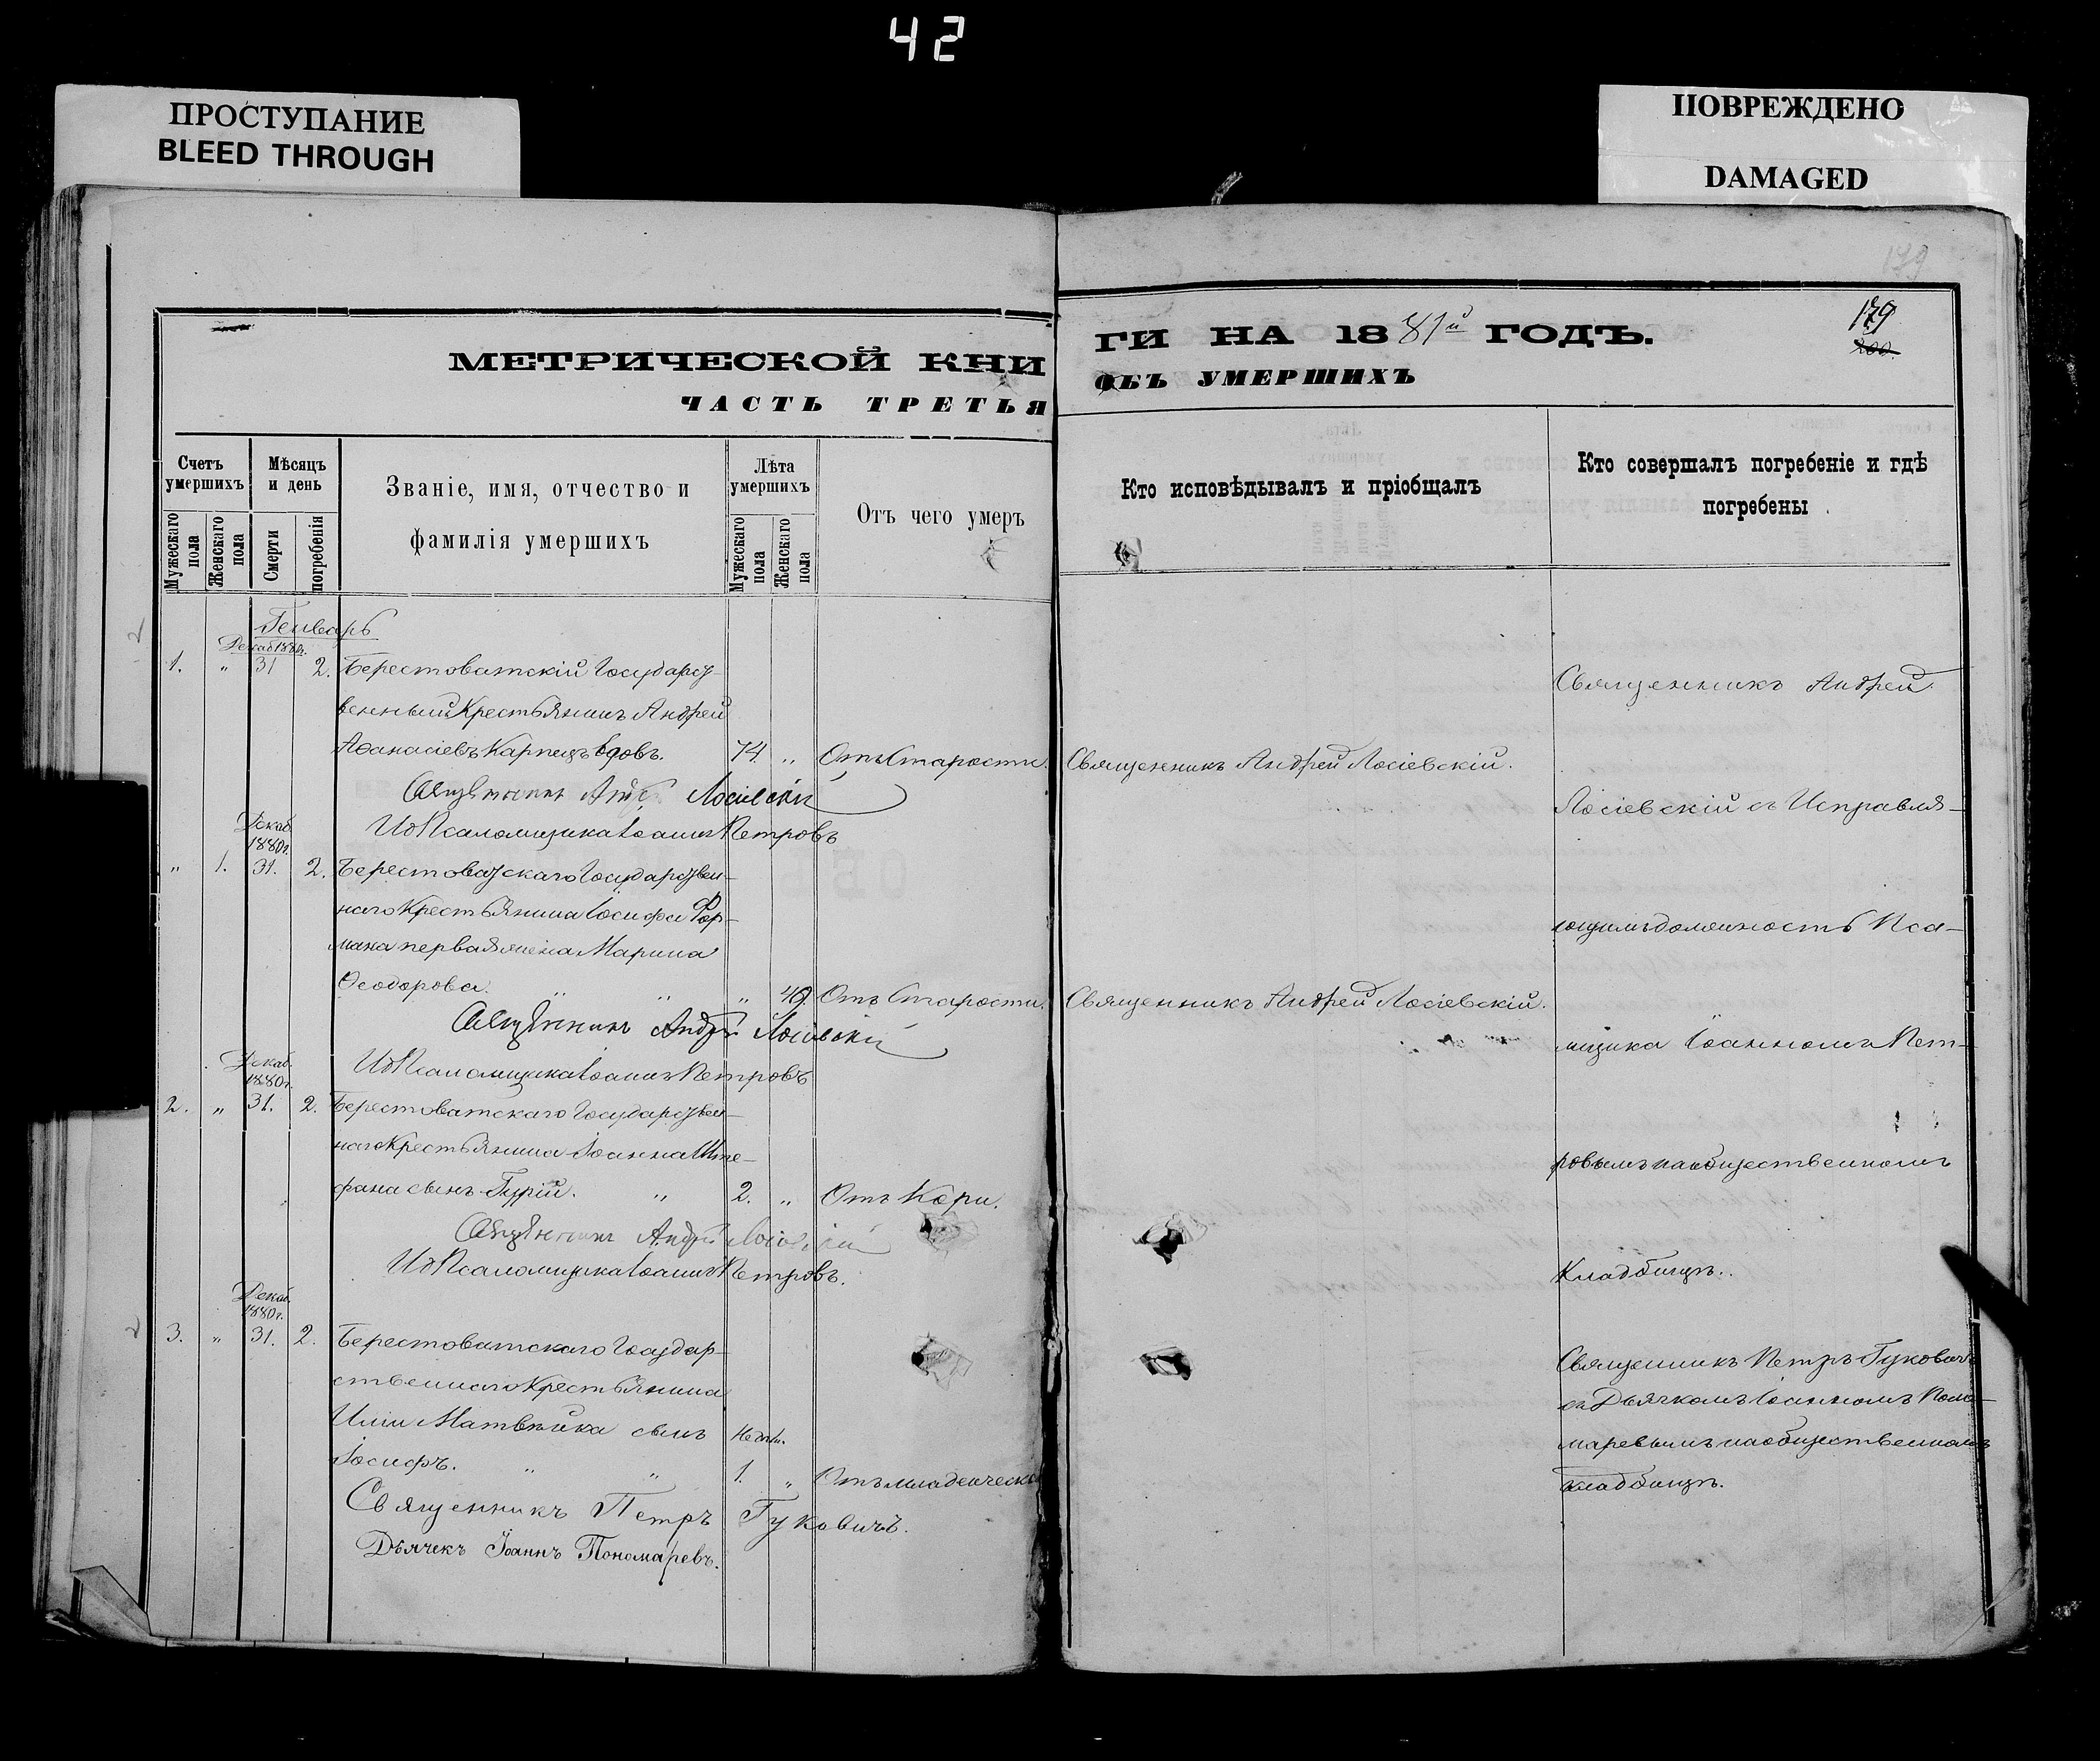 42
ПРОСТУПАНИЕ
BLEED THROUGH
ПОВРЕЖДЕНО
DAMAGED
179
179
200.
МЕТРИЧЕСКОЙ КНИ
ГИ НА 1881й ГОДЪ.
ЧАСТЬ ТРЕТЬЯ
ОБЪ УМЕРШИХЪ
Счетъ умершихъ
Мужескаго пола
Женскаго пола
Мѣсяцъ и день
Смерти
погребенія
Званіе, имя, отчество и
фамилія умершихъ
Лѣта умершихъ
Мужескаго пола
Женскаго пола
Отъ чего умеръ
Кто исповѣдывалъ и пріобщалъ
Кто совершалъ погребеніе и гдѣ
погребены
Генварь
Декаб 1880г.
1. „ 31 2. Берестоватскій Государст-
венный Крестьянинъ Андрей
Аѳанасіевъ Карпецъ вдовъ. 74. „ Отъ Старости. Священникъ Андрей Лосіевскій.
Священникъ Андрей Лосіевскій
И д Псаломщика Іоаннъ Петровъ
Декаб.
1880г.
„ 1. 31. 2. Берестоватскаго Государствен-
наго Крестьянина Іосифа Фор-
мана первая жена Марина
Ѳеодорова. „ „ „ 49. Отъ Старости. Священникъ Андрей Лосіевскій.
Священникъ Андрей Лосіевскій
И д Псаломщика Іоаннъ Петровъ
Декаб.
1880г.
2. „ 31. 2. Берестоватскаго Государствен-
наго Крестьянина Іоанна Ште-
фана сынъ Гурій. „ 2. „ Отъ Кори.
Священникъ Андрей Лосіевскій
И д Псаломщика Іоаннъ Петровъ.
Декаб.
1880г.
3. „ 31. 2. Берестоватскаго Государ-
ственнаго Крестьянина
Иліи Матвѣйка сынъ Недѣл.
Іосифъ. „ „ 1. „ Отъ младенческой
Священникъ Петръ Гуковичъ.
Дьячекъ Іоаннъ Пономаревъ.
Священникъ Андрей
Лосіевскій съ Исправля-
ющимъ должность Пса-
ломщика Іоанномъ Пет-
ровымъ на общественномъ
Кладбищѣ.
Священникъ Петръ Гуковичъ
съ Дьячкомъ Іоанномъ Поно-
маревымъ на общественномъ
кладбищѣ.